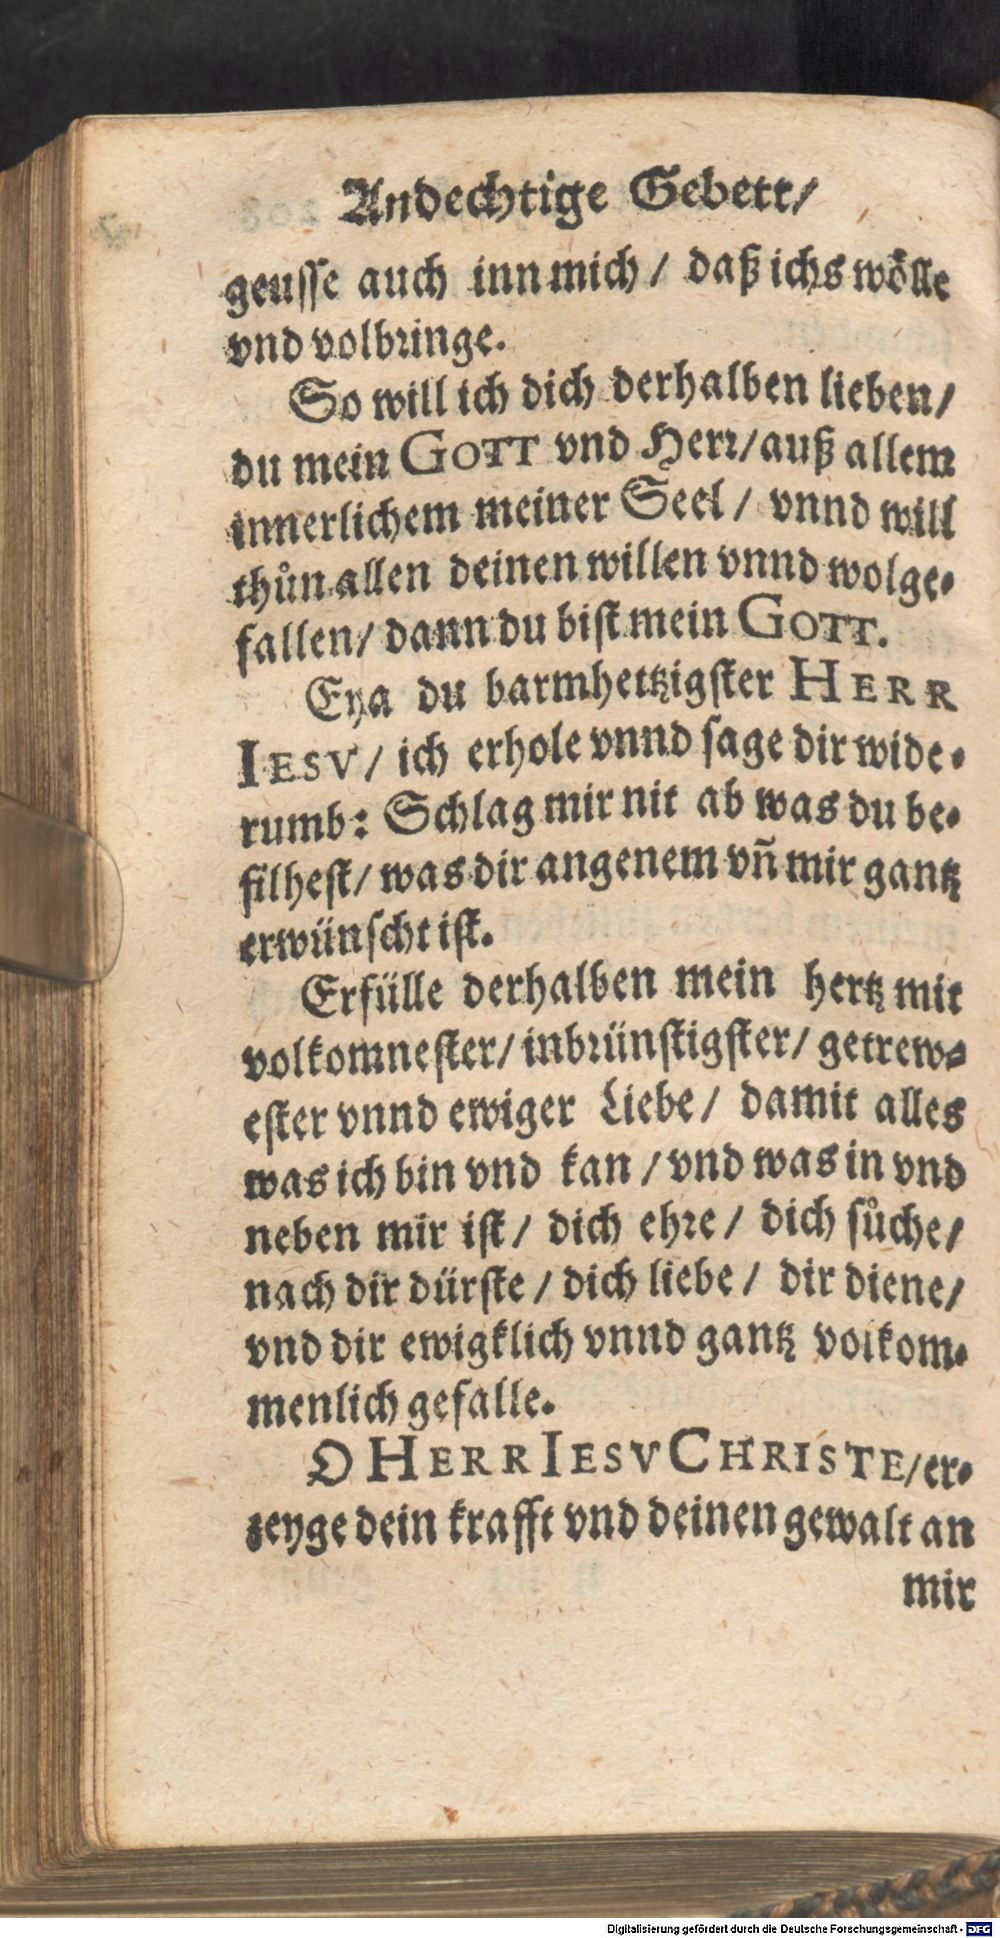 Andechtige Gebett/
geusse auch inn mich / daß ichs wölle
vnd volbringe.
So will ich dich derhalben lieben/
du mein GOTT vnd Herr/auß allem
innerlichem meiner Seel / vnnd will
thůn allen deinen willen vnnd wolge-
fallen/ dann du bist mein GOTT.
Eya du barmhertzigster HERR
IESV/ ich erhole vnnd sage dir wide-
rumb: Schlag mir nit ab was du be-
filhest/ was dir angenem vñ mir gantz
erwünscht ist.
Erfülle derhalben mein hertz mit
volkomnester/ inbrünstigster/ getrew-
ester vnnd ewiger Liebe/ damit alles
was ich bin vnd kan / vnd was in vnd
neben mir ist/ dich ehre/ dich sůche/
nach dir dürste / dich liebe/ dir diene/
vnd dir ewigklich vnnd gantz volkom-
menlich gefalle.
O HERR IESV CHRISTE/er-
zeyge dein krafft vnd deinen gewalt an
mir
Digitalisierung gefördert durch die Deutsche Forschungsgemeinschaft - DFG